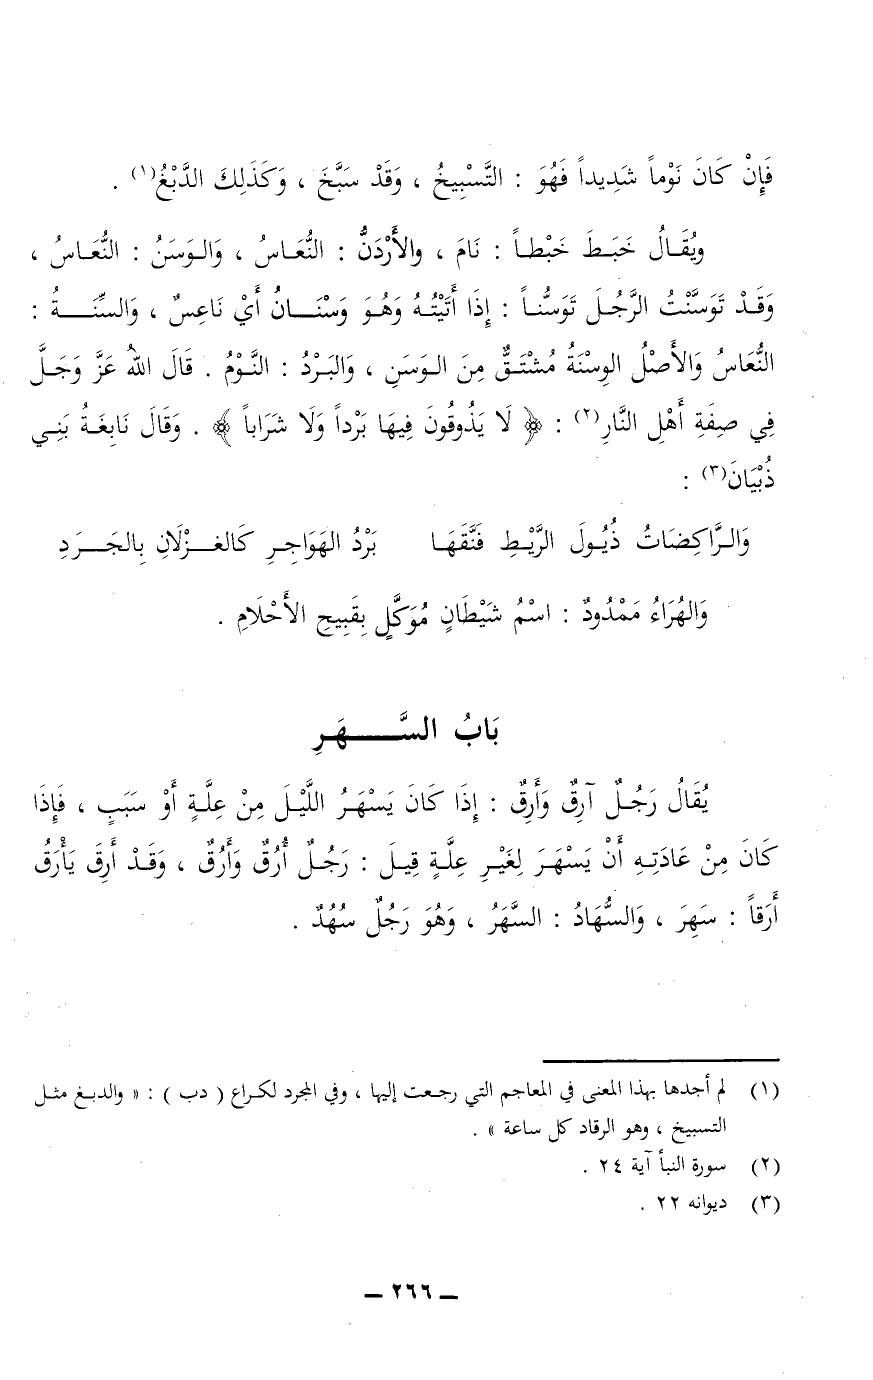 فَإِنْ كَانَ نَوْماً شَدِيداً فَهُوَ : التَّسْبِيخُ ، وَقَدْ سَبَّخَ ، وَكَذَلِكَ الدَّبْغُ(١) .
ويُقَالُ خَبَطَ خَبْطاً : نَامَ ، والأَرْدَنُّ : النُّعَاسُ ، وَالوَسَنُ : النُّعَاسُ ،
وَقَدْ تَوَسَّنْتُ الرَّجُلَ تَوَسُّناً : إِذَا أَتَيْتُهُ وَهُوَ وَسْنَانُ أَيْ نَاعِسٌ ، وَالسِّنَةُ :
النُّعَاسُ وَالأَصْلُ الوِسْنَةُ مُشْتَقٌّ مِنَ الوَسَنِ ، وَالبَرْدُ : النَّوْمُ . قَالَ اللهُ عَزَّ وَجَلَّ
فِي صِفَةِ أَهْلِ النَّارِ(٢) : ﴿ لَا يَذُوقُونَ فِيهَا بَرْداً وَلَا شَرَاباً ﴾ . وَقَالَ نَابِغَةُ بَنِي
ذُبْيَانَ(٣) :
وَالرَّاكِضَاتُ ذُيُولَ الرَّيْطِ فَنَّقَهَا بَرْدُ الهَوَاجِرِ كَالغِزْلَانِ بِالجَرَدِ
وَالهُرَاءُ مَمْدُودٌ : اسْمُ شَيْطَانٍ مُوَكَّلٍ بِقَبِيحِ الأَحْلَامِ .
بَابُ السَّهَرِ
يُقَالُ رَجُلٌ آرِقٌ وَأَرِقٌ : إِذَا كَانَ يَسْهَرُ اللَّيْلَ مِنْ عِلَّةٍ أَوْ سَبَبٍ ، فَإِذَا
كَانَ مِنْ عَادَتِهِ أَنْ يَسْهَرَ لِغَيْرِ عِلَّةٍ قِيلَ : رَجُلٌ أُرُقٌ وَأَرُقٌ ، وَقَدْ أَرِقَ يَأْرَقُ
أَرَقاً : سَهِرَ ، وَالسُّهَادُ : السَّهَرُ ، وَهُوَ رَجُلٌ سُهُدٌ .
(١) لم أجدها بهذا المعنى في المعاجم التي رجعت إليها ، وفي المجرد لكراع ( دب ) : « والدبغ مثل
التسبيخ ، وهو الرقاد كل ساعة » .
(٢) سورة النبأ آية ٢٤ .
(٣) ديوانه ٢٢ .
ــ ٢٦٦ ــ